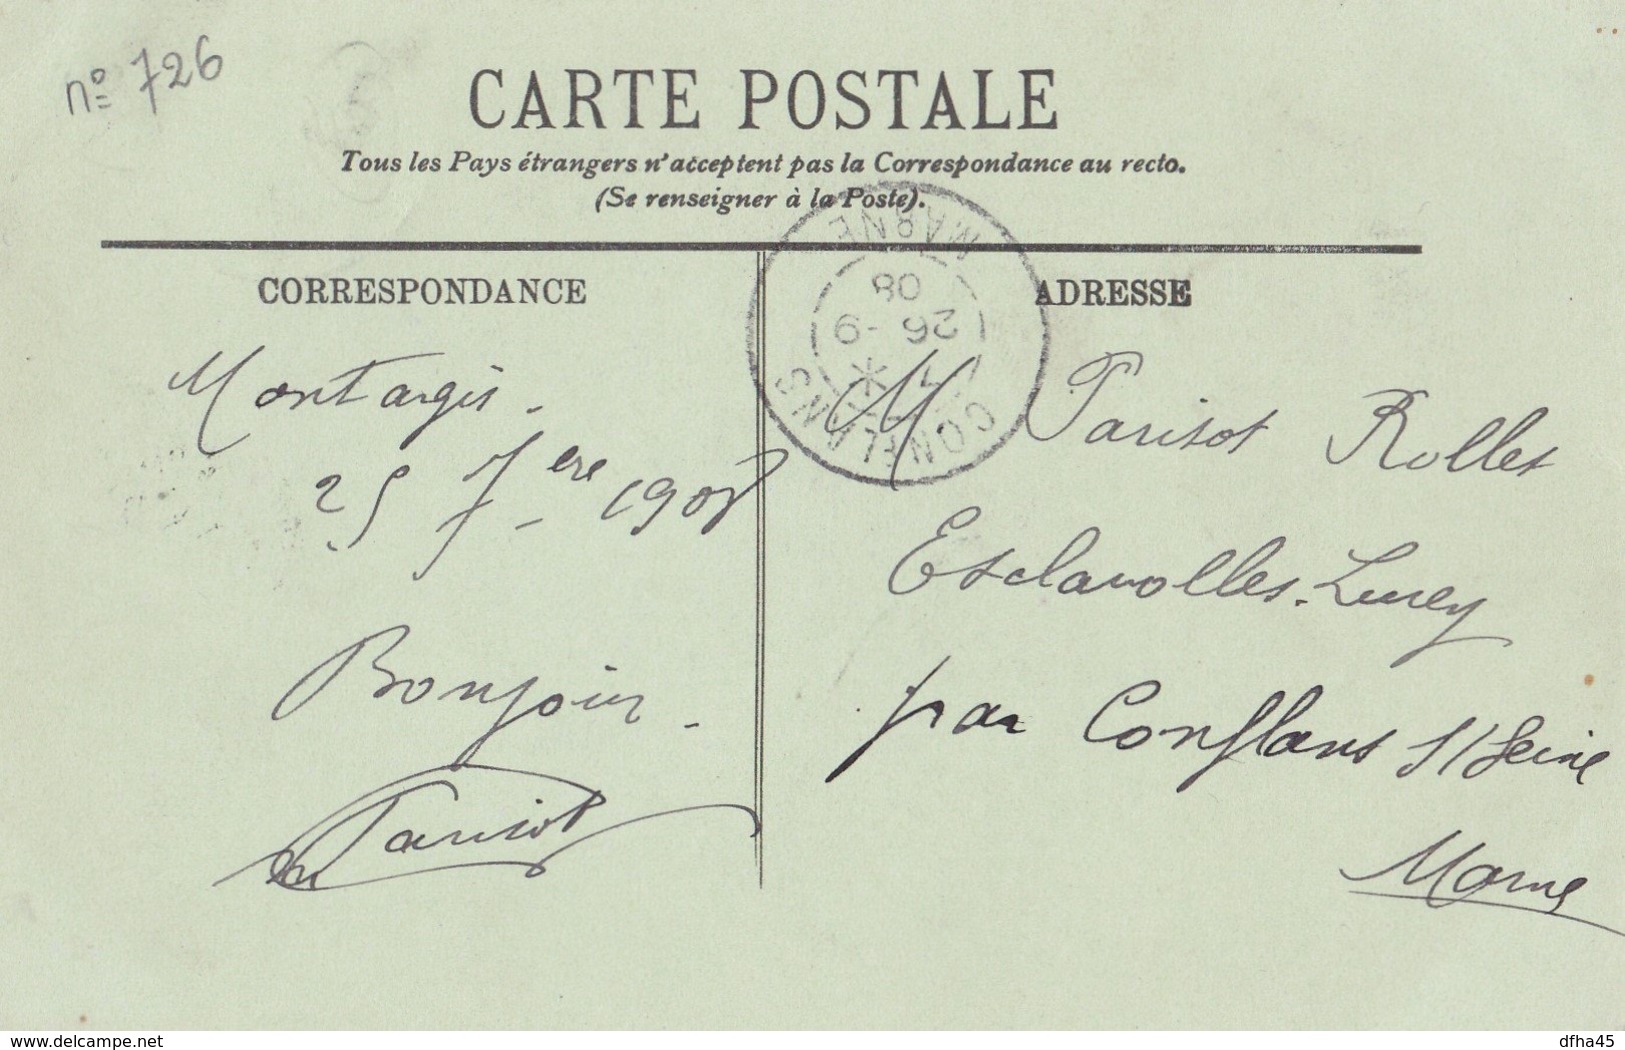 nº 726
CARTE POSTALE
Tous les Pays étrangers n'acceptent pas la Correspondance au recto.
(Se renseigner à la Poste).
CORRESPONDANCE
Montargis.
25 7bre 1908
Bonjour.
Parisot
ADRESSE
CONFLANS
* 26-9
08
MARNE
M Parisot Rollet
Esclavolles-Lurey
par Conflans s/Seine
Marne
www.delcampe.net
dfha45